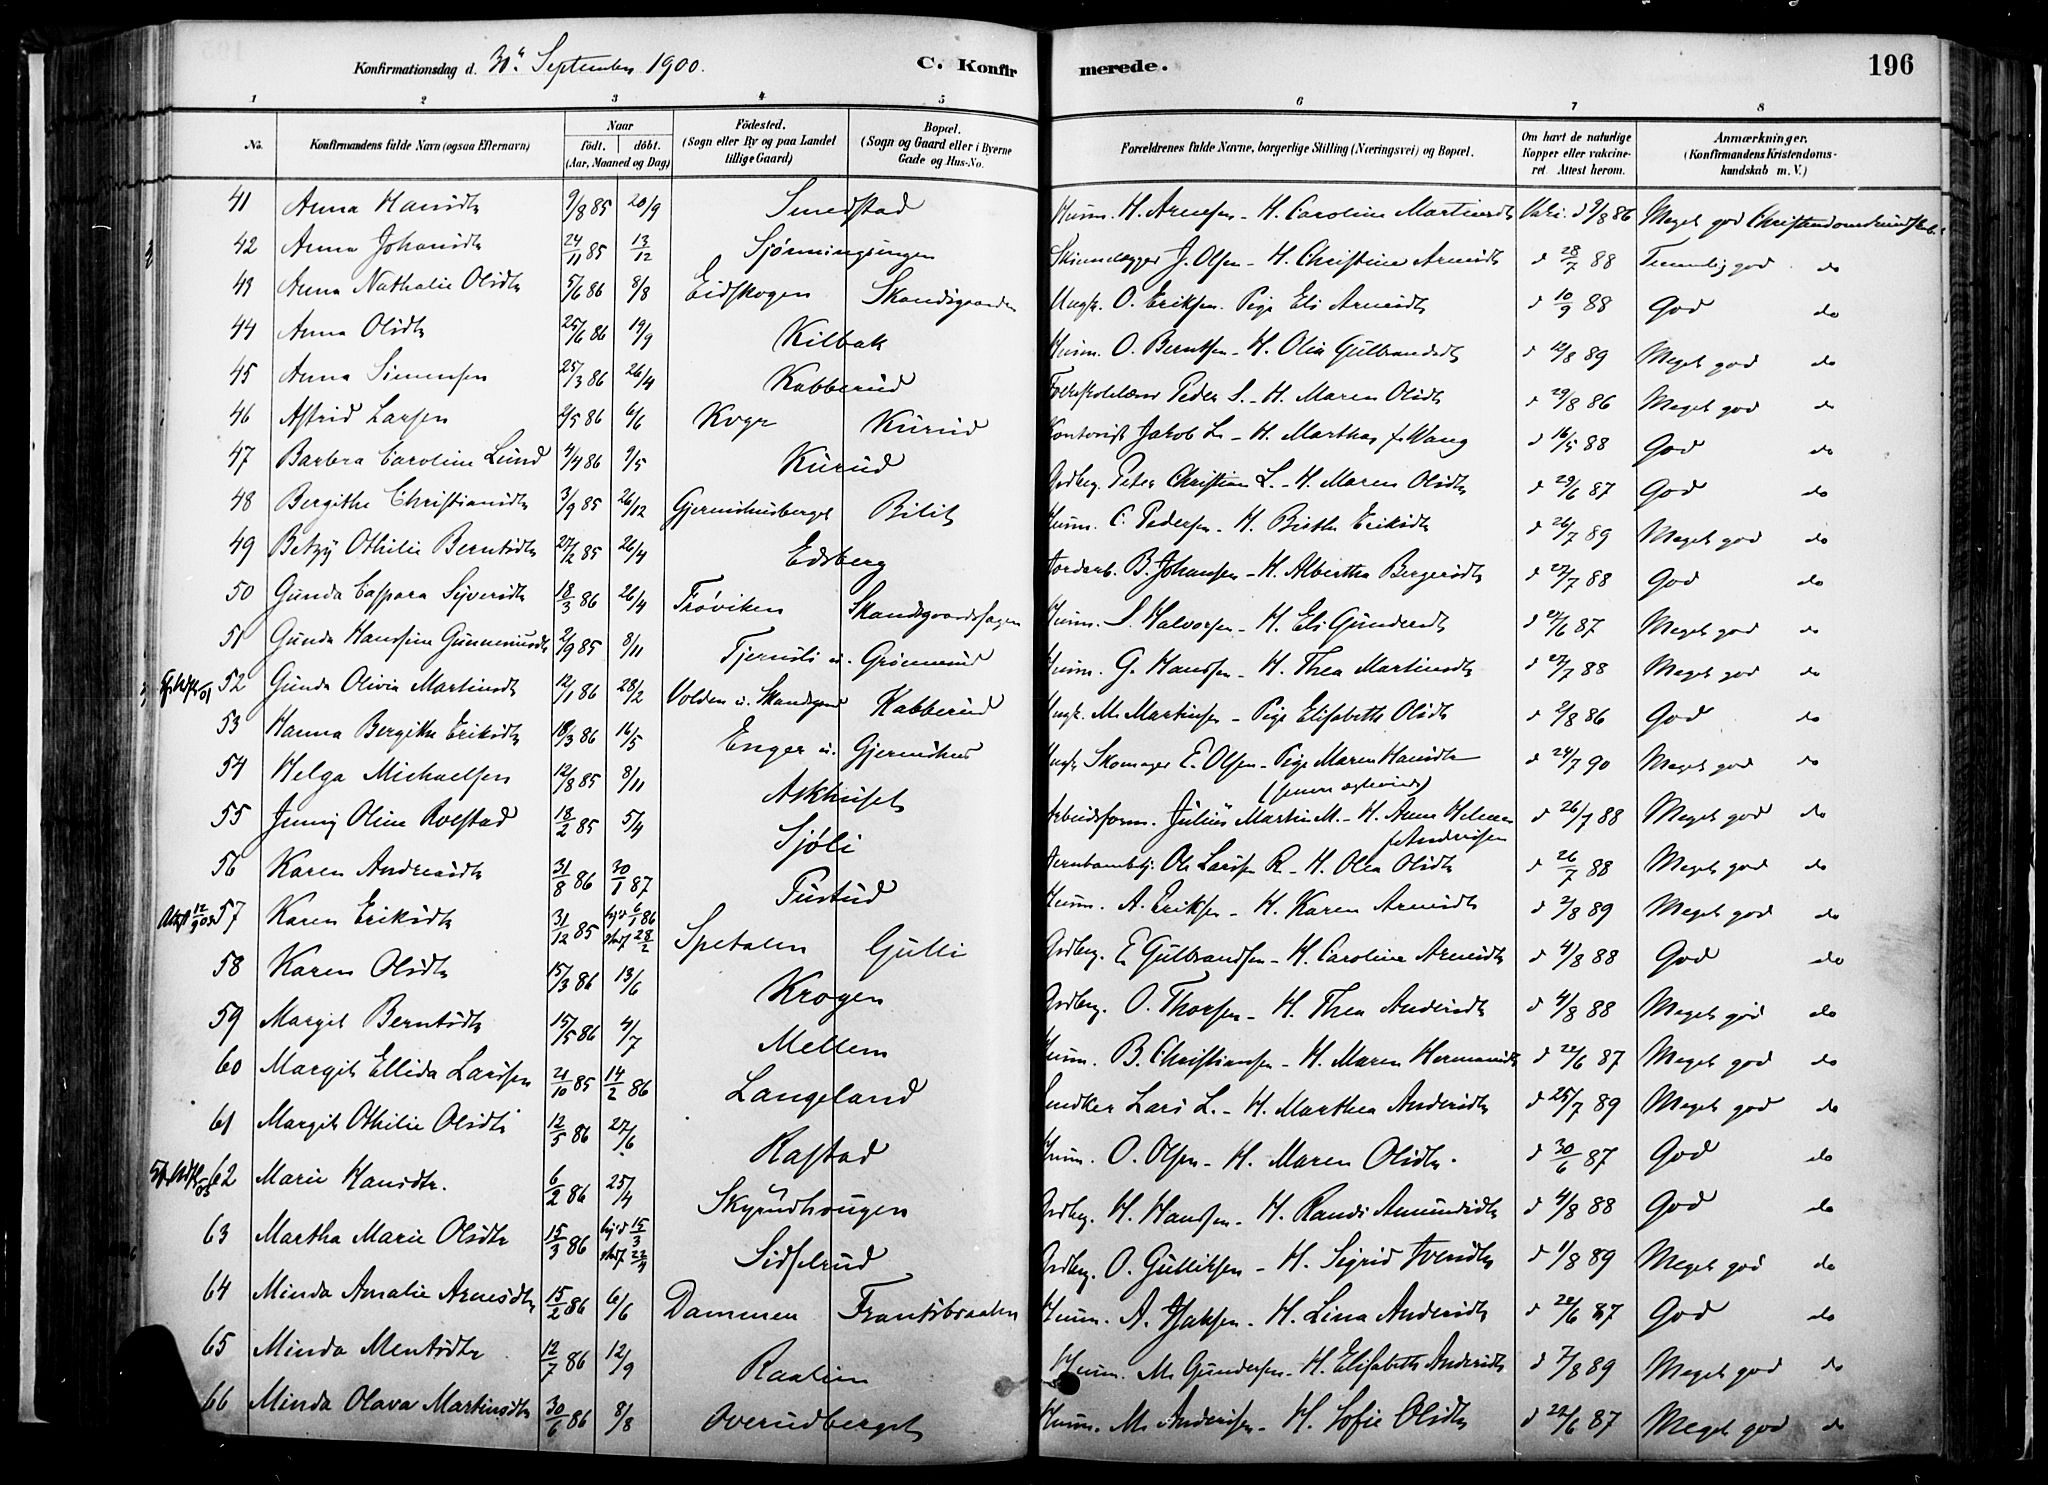 Konfirmationsdag d. September 1900. C. Konfir merede. 196
1 2 3 4 5 6 7 8
No. Konfirmandens fulde Navn (ogsaa Efternavn) Naar födt. döbt. (Aar, Maaned og Dag) Födested. (Sogn eller By og paa Landet tillige Gaard) Bopæl. (Sogn og Gaard eller i Byerne Gade og Hus-No. Forældrenes fulde Navne, borgerlige Stilling (Næringsvei) og Bopæl. Om havt de naturlige Kopper eller vakcineret. Attest herom. Anmærkninger. (Konfirmandens Kristendomskundskab m. V.)
41 Anna Hansdtr 9/8 85 20/9 Smedstad Husm. H. Arnesen - H. Caroline Martinsdtr Vakc. d 9/8 86 Meget god Christendomskundskab
42 Anna Johansdtr 24/11 85 13/12 J. Olsen - H. Christine Arnesdtr d 28/7 88 Temmelig god do
43 Anna Nathalie Olsdtr 5/6 86 8/8 Eidskogen Ungk. O. Eriksen. Pige Eli Arnesdtr d 10/9 88 God do
44 Anna Olsdtr 25/6 86 19/9 Kilbak Husm. O. Berntsen - H. Olia Gulbrandsdtr d 12/8 89 Meget god do
45 Anna Simensen 25/3 86 26/4 Kabberud Peder S. - H. Maren Olsdtr d 29/8 86 Meget god do
46 Astrid Larsen 2/5 86 6/6 Kurud Kontorist Jakob L. - H. Marthea f. Wang d 16/5 88 God do
47 Barbra Caroline Lund 4/4 86 9/5 Kurud Gdbrg. Peter Christian L. - H. Maren Olsdtr d 29/6 87 God do
48 Bergithe Christiansdtr 3/9 85 26/12 Gjermshusberget Bilit Husm. C. Pedersen - H. Birthe Eriksdtr d 26/7 89 Meget god do
49 Betzy Othilie Berntsdtr 27/2 85 26/4 Edsberg Jordarb. B. Johansen - H. Alberthe Bergersdtr d 27/7 88 God do
50 Gunda Caspara Syversdtr 18/3 86 26/4 Frøviken Husm. S. Halvorsen - H. Eli Gundersdtr d 21/6 87 Meget god do
51 Gunda Hansine Gunnerusdtr 2/9 85 8/11 Tjernsli u. Grønnerud Husm. G. Hansen - H. Thea Martinsdtr d 27/7 88 Meget god do
52 Gunda Olivia Martinsdtr 12/1 86 28/2 Volden u. Kabberud Ungk. M. Martinsen - Pige Elisabeth Olsdtr d 2/8 86 God do
53 Hanna Bergithe Eriksdtr 18/3 86 16/5 Enger u. Gjermshus Ungk. Skomager E. Olsen - Pige Maren Hansdtr d 24/7 90 Meget god do
54 Helga Michaelsen 12/8 85 8/11 Askhuset Arbeidsform. Julius Martin M. - H. Anne Helene f. Andersen d 26/7 88 Meget god do
55 Jenny Oline Rolstad 18/2 85 5/4 Sjøli Ole Larsen R. - H. Olea Olsdtr d 26/7 88 Meget god do
56 Karen Andreasdtr 31/8 86 30/1 87 Pustud Husm. A. Eriksen - H. Karen Arnesdtr d 2/8 89 Meget god do
57 Karen Eriksdtr 31/12 85 6/1 86 28/2 Spetalen Gulli Gdbrg. E. Gulbrandsen - H. Caroline Arnesdtr d 4/8 88 God do
58 Karen Olsdtr 15/3 86 13/6 Krogen Gdbrg. O. Thorsen - H. Thea Andersdtr d 4/8 88 Meget god do
59 Margit Berntsdtr 15/5 86 4/7 Mellem Husm. B. Christiansen - H. Maren Hermansdtr d 22/6 87 Meget god do
60 Margit Ellida Larsen 21/10 85 14/2 86 Langeland Snedker Lars L. - H. Marthea Andersdtr d 25/7 89 Meget god do
61 Margit Othilie Olsdtr 12/5 86 27/6 Rastad Husm. O. Olsen - H. Maren Olsdtr. d 30/6 87 God do
62 Marie Hansdtr. 6/2 86 25/4 Skyrudhougen Gdbrg. H. Hansen - H. Randi Amundsdtr d 4/8 88 God do
63 Martha Marie Olsdtr 15/3 86 15/3 Sidselrud Gdbrg. O. Gulliksen - H. Sigrid Iversdtr d 1/8 89 Meget god do
64 Minda Amalie Arnesdtr 15/2 86 6/6 Dammen Frantsbraaten Husm. A. - H. Lina Andersdtr d 22/6 87 God do
65 Minda Mentsdtr 12/7 86 12/9 Raalien Husm. M. Gundersen - H. Elisabeth Andersdtr d 7/8 89 Meget god do
66 Minda Olava Martinsdtr 30/6 86 8/8 Overudberget Husm. M. Andersen - H. Sofie Olsdtr d 22/6 87 Meget god do